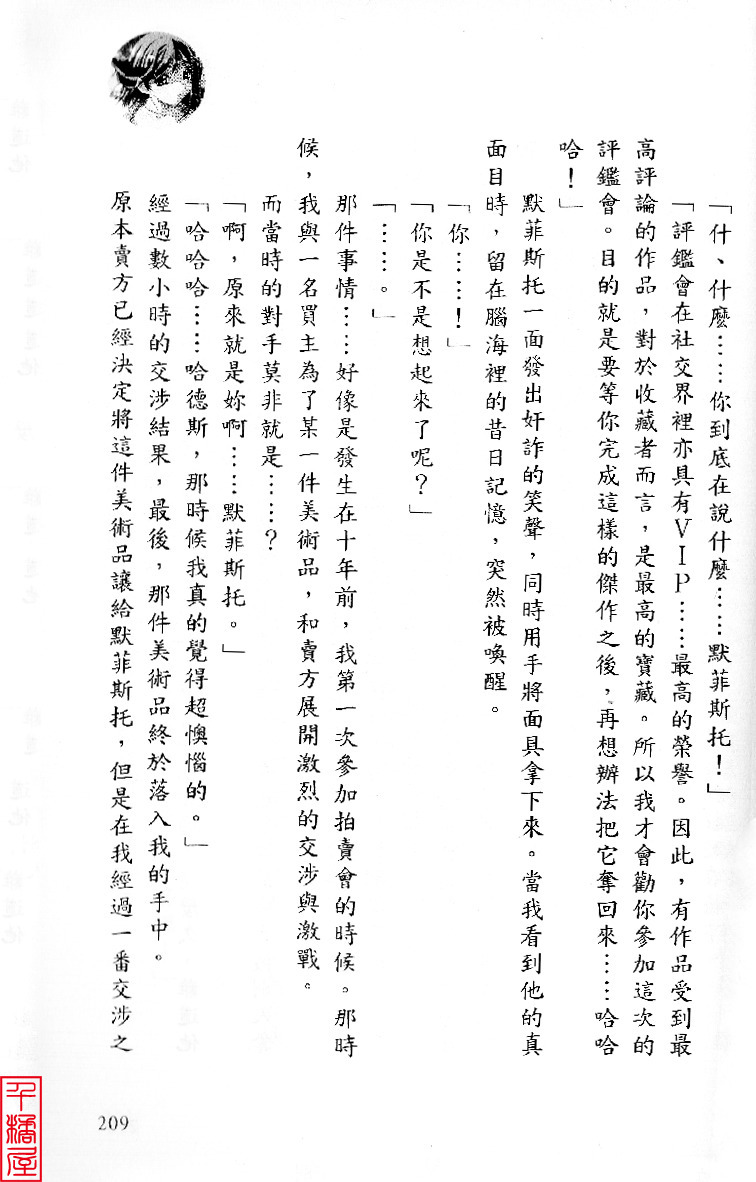 「什、什麼……你到底在說什麼……默菲斯托！」
「評鑑會在社交界裡亦具有ＶＩＰ……最高的榮譽。因此，有作品受到最
高評論的作品，對於收藏者而言，是最高的寶藏。所以我才會勸你參加這次的
評鑑會。目的就是要等你完成這樣的傑作之後，再想辦法把它奪回來……哈哈
哈！」
默菲斯托一面發出奸詐的笑聲，同時用手將面具拿下來。當我看到他的真
面目時，留在腦海裡的昔日記憶，突然被喚醒。
「你……！」
「你是不是想起來了呢？」
「……。」
那件事情……好像是發生在十年前，我第一次參加拍賣會的時候。那時
候，我與一名買主為了某一件美術品，和賣方展開激烈的交涉與激戰。
而當時的對手莫非就是……？
「啊，原來就是妳啊……默菲斯托。」
「哈哈哈……哈德斯，那時候我真的覺得超懊惱的。」
經過數小時的交涉結果，最後，那件美術品終於落入我的手中。
原本賣方已經決定將這件美術品讓給默菲斯托，但是在我經過一番交涉之
209